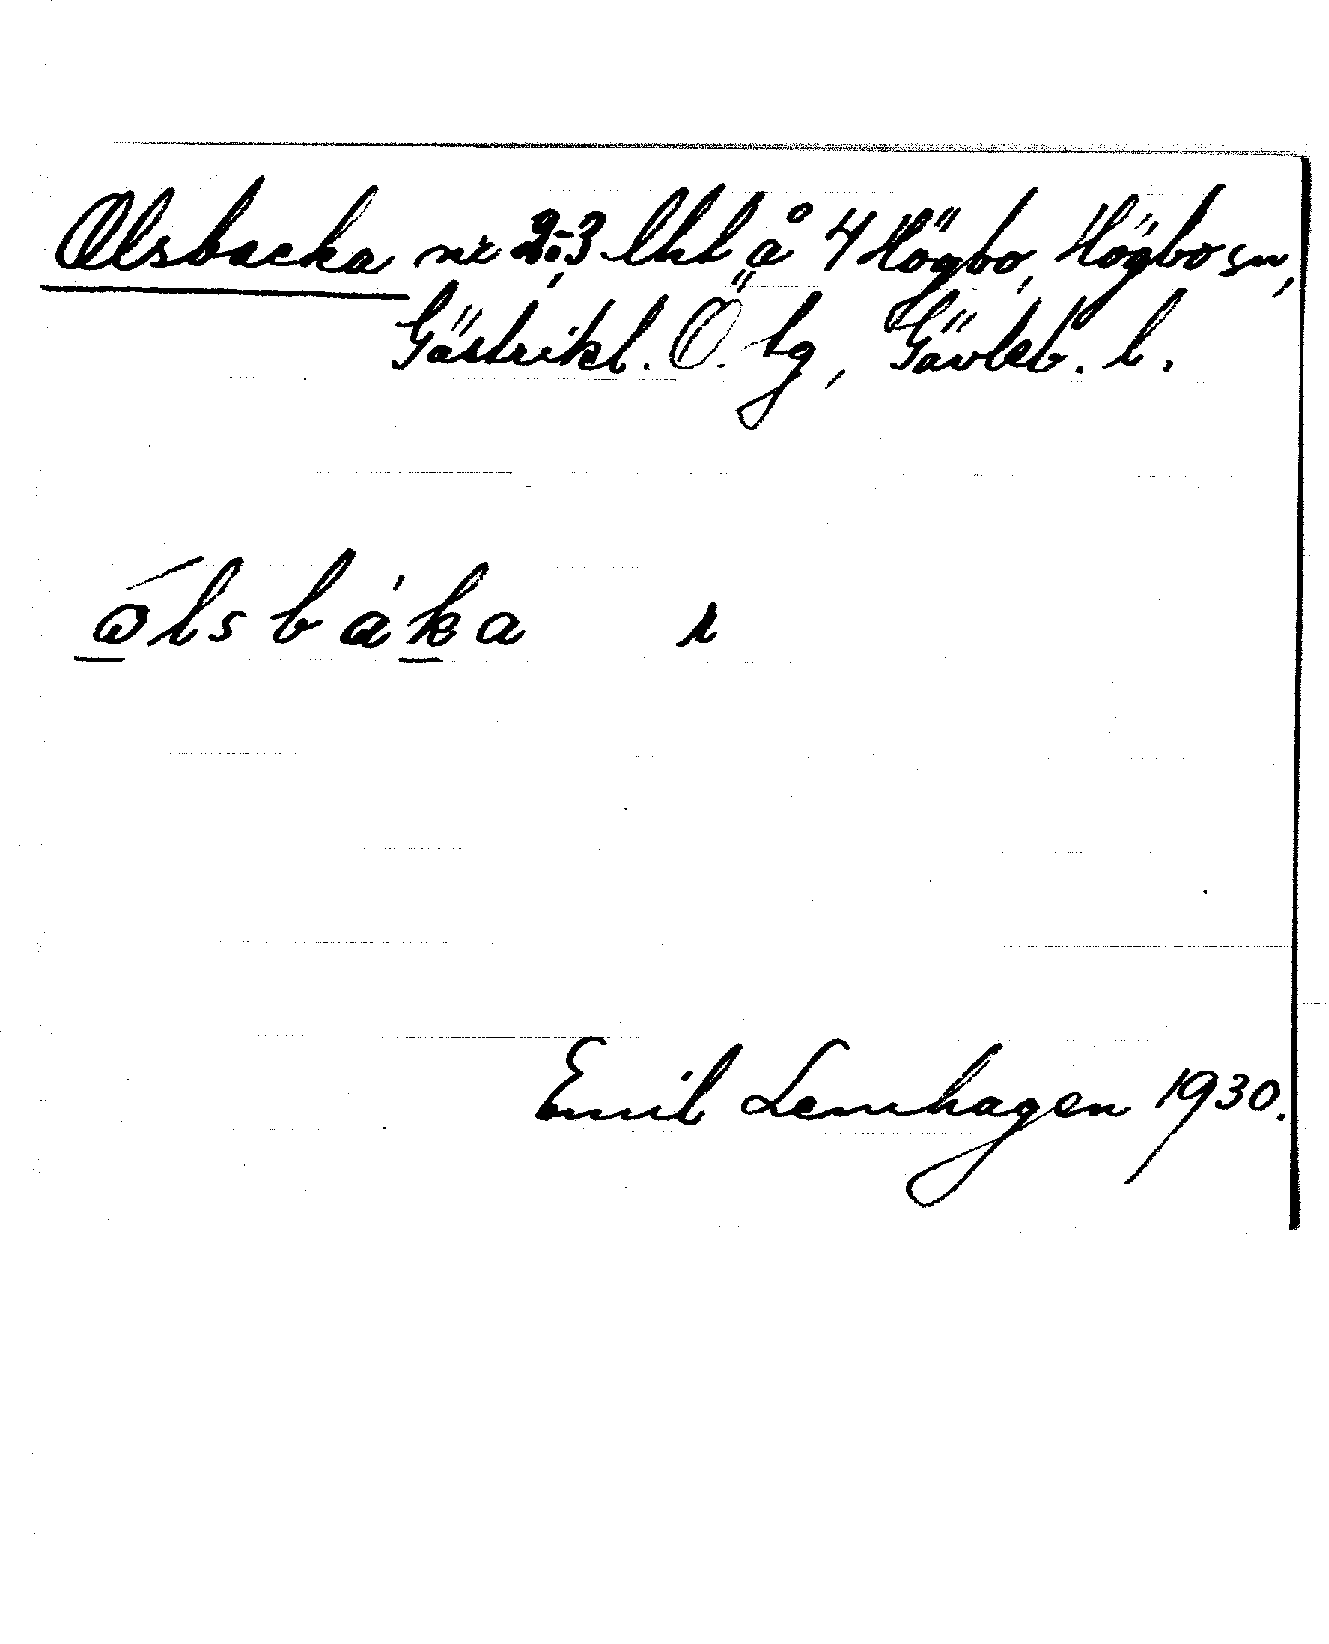 Olsbacka nr 2:3 lht å 4 Högbo, Högbo sn,
Gästrikl. Ö. tg, Gävleb. l.
ólsbáka
Emil Lemhagen 1930.